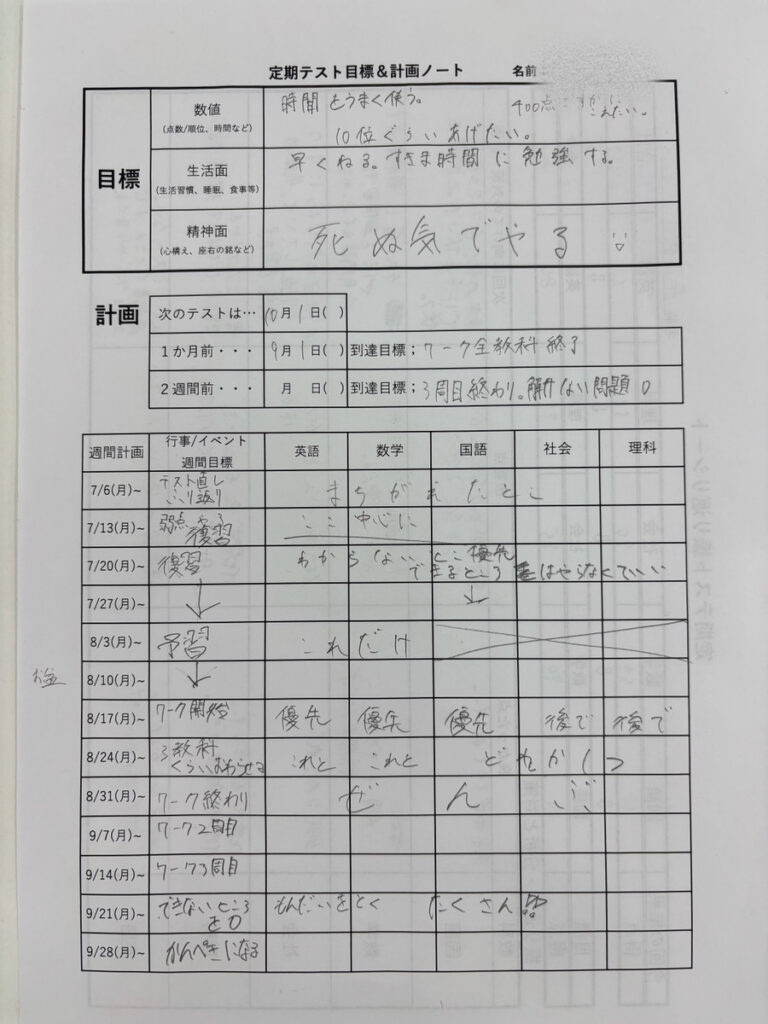 定期テスト目標＆計画ノート 名前
目標
数値
(点数/順位、時間など)
時間をうまく使う。
400点 こえたい。
10位ぐらいあげたい。
生活面
(生活習慣、睡眠、食事等)
早くねる。すきま時間に勉強する。
精神面
(心構え、座右の銘など)
死ぬ気でやる
計画
次のテストは… 10月1日( )
1か月前・・・ 9月1日( ) 到達目標；ワーク全教科終了
2週間前・・・ 月 日( ) 到達目標；3周目終わり。解けない問題0
週間計画 行事/イベント 週間目標 英語 数学 国語 社会 理科
7/6(月)~ テスト直し ふり返り まちがえたとこ
7/13(月)~ 弱点 復習 ここ中心に
7/20(月)~ 復習 わからないとこ優先 できるところはやらなくていい
7/27(月)~ ↓ ↓
8/3(月)~ 予習 これだけ
お盆 8/10(月)~ ↓
8/17(月)~ ワーク開始 優先 優先 優先 後で 後で
8/24(月)~ 3教科くらいおわらせる これと これと どれか1つ
8/31(月)~ ワーク終わり ぜんぶ
9/7(月)~ ワーク2周目
9/14(月)~ ワーク3周目
9/21(月)~ できないところを0 もんだいをとく たくさん!!
9/28(月)~ かんぺきになる